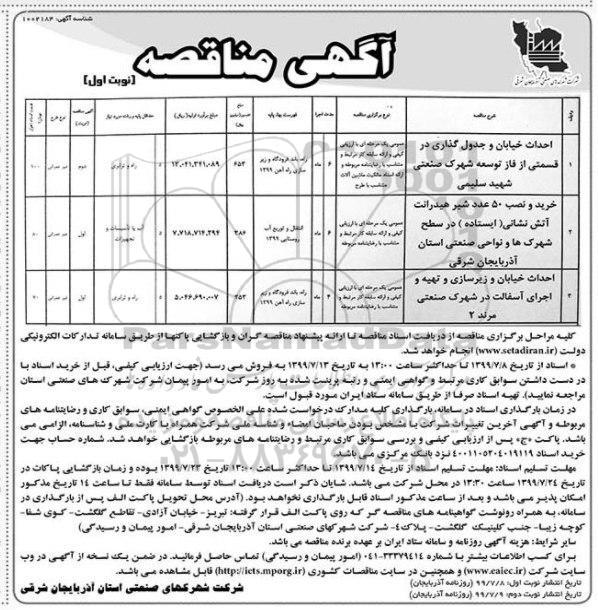 شناسه آگهی: ۱۰۰۲۱۸۴
آگهی مناقصه
(نوبت اول)
شرکت شهرکهای صنعتی آذربایجان شرقی
ردیف
شرح مناقصه
نوع برگزاری مناقصه
مدت اجرا
فهرست بهاء پایه
مبلغ برآورد اولیه( ریال )
حداقل پایه و رشته مورد نیاز
نوع طرح
۱
احداث خیابان و جدول گذاری در قسمتی از فاز توسعه شهرک صنعتی شهید سلیمی
۶ ماه
راه، باند فرودگاه و زیر سازی راه آهن ۱۳۹۹
۶۵۳
۱۳,۰۴۱,۳۴۱,۰۸۹
۵
راه و ترابری
دوم
غیر عمرانی
۲
خرید و نصب ۵۰ عدد شیر هیدرانت آتش نشانی( ایستاده ) در سطح شهرک ها و نواحی صنعتی استان آذربایجان شرقی
۶ ماه
انتقال و توزیع آب روستایی ۱۳۹۹
۳۸۶
۷,۷۱۸,۷۱۴,۳۹۴
۵
آب یا تاسیسات و تجهیزات
اول
غیر عمرانی
۳
احداث خیابان و زیرسازی و تهیه و اجرای آسفالت در شهرک صنعتی مرند ۲
۴ ماه
راه، باند فرودگاه و زیر سازی راه آهن ۱۳۹۹
۲۵۳
۵,۰۴۶,۶۹۰,۰۰۷
۵
راه و ترابری
اول
غیر عمرانی
کلیه مراحل برگزاری مناقصه از دریافت اسناد مناقصه تا ارائه پیشنهاد مناقصه گران و بازگشایی پاکتها از طریق سامانه تدارکات الکترونیکی
دولت (www.setadiran.ir) انجام خواهد شد.
* اسناد از تاریخ ۱۳۹۹/۷/۸ تا حداکثر ساعت ۱۳:۰۰ به تاریخ ۱۳۹۹/۷/۱۳ به فروش می رسد (جهت ارزیابی کیفی، قبل از خرید اسناد با
در دست داشتن سوابق کاری مرتبط و گواهی ایمنی و رتبه پرینت شده به روز شرکت، به امور پیمان شرکت شهرک های صنعتی استان
مراجعه نمایید). تهیه اسناد صرفا از طریق سامانه ستاد ایران مورد قبول است.
در زمان بارگذاری اسناد در سامانه، بارگذاری کلیه مدارک درخواست شده علی الخصوص گواهی ایمنی، سوابق کاری و رضایتنامه های
مربوطه و آگهی آخرین تغییرات شرکت با مشخص بودن صاحبان امضاء و شناسه ملی شرکت، همراه با کارت ملی و شناسنامه، الزامی می
باشد. پاکت «ج» پس از ارزیابی کیفی و بررسی سوابق کاری مرتبط و رضایتنامه های مربوطه بازگشایی خواهد شد. شماره حساب جهت
خرید اسناد ۴۰۰۱۱۰۵۲۰۴۰۱۹۱۱۹ نزد بانک مرکزی می باشد.
مهلت تسلیم اسناد: مهلت تسلیم اسناد از تاریخ ۱۳۹۹/۷/۱۴ تا حداکثر ساعت ۱۳:۰۰ تاریخ ۱۳۹۹/۷/۲۳ بوده و زمان بازگشایی پاکات در
تاریخ ۱۳۹۹/۷/۲۴ ساعت ۱۳:۳۰ در محل شرکت می باشد. شایان ذکر است دریافت اسناد توسط سامانه فقط تا ساعت ۱۴ تاریخ مذکور
امکان پذیر می باشد و بعد از ساعت مذکور اسناد قابل بارگذاری نخواهد بود. (آدرس محل تحویل پاکت الف پس از بارگذاری در
سامانه، به همراه رونوشت گواهینامه های مناقصه گر که روی پاکت الف قرار گرفته: تبریز- خیابان آزادی- تقاطع گلگشت- کوی شفا-
کوچه زیبا- جنب کلینیک گلگشت- پلاک۴- شرکت شهرکهای صنعتی استان آذربایجان شرقی- امور پیمان و رسیدگی)
سایر شرایط: هزینه آگهی روزنامه و سامانه ستاد ایران بر عهده برنده مناقصه می باشد.
برای کسب اطلاعات بیشتر با شماره ۳۳۳۷۹۴۱۴-۰۴۱ (امور پیمان و رسیدگی) تماس حاصل فرمائید. در ضمن یک نسخه از آگهی در وب
سایت شرکت (www.eaiec.ir) و همچنین در سایت مناقصات کشوری (http://iets.mporg.ir) قابل مشاهده می باشد.
تاریخ انتشار نوبت اول: ۹۹/۷/۸ (روزنامه آذربایجان)
تاریخ انتشار نوبت دوم: ۹۹/۷/۹ (روزنامه آذربایجان)
شرکت شهرکهای صنعتی استان آذربایجان شرقی
ParsNamadData